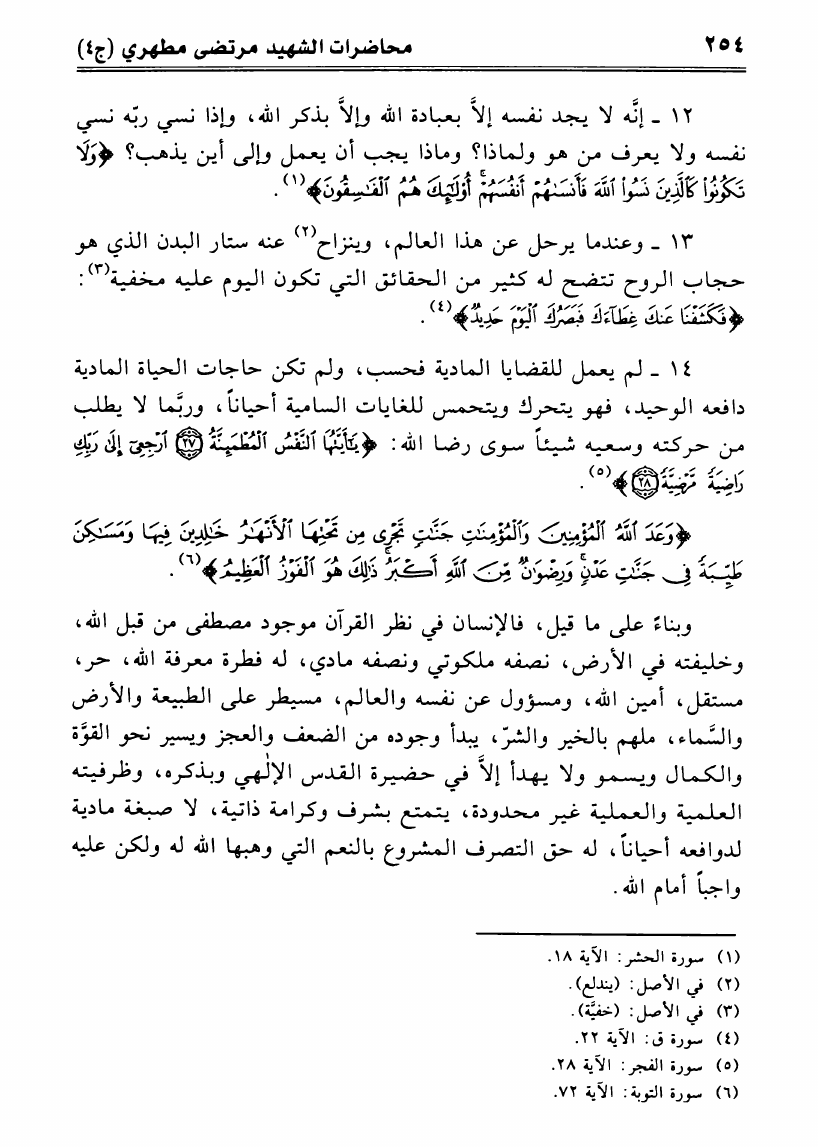 ٢٥٤ محاضرات الشهيد مرتضى مطهري (ج٤)
١٢ ـ إنَّه لا يجد نفسه إلاَّ بعبادة الله وإلاَّ بذكر الله، وإذا نسي ربّه نسي
نفسه ولا يعرف من هو ولماذا؟ وماذا يجب أن يعمل وإلى أين يذهب؟ ﴿وَلَا
تَكُونُوا۟ كَٱلَّذِينَ نَسُوا۟ ٱللَّهَ فَأَنسَىٰهُمْ أَنفُسَهُمْ ۚ أُو۟لَـٰٓئِكَ هُمُ ٱلْفَـٰسِقُونَ﴾(١).
١٣ ـ وعندما يرحل عن هذا العالم، وينزاح(٢) عنه ستار البدن الذي هو
حجاب الروح تتضح له كثير من الحقائق التي تكون اليوم عليه مخفية(٣):
﴿فَكَشَفْنَا عَنكَ غِطَآءَكَ فَبَصَرُكَ ٱلْيَوْمَ حَدِيدٌ﴾(٤).
١٤ ـ لم يعمل للقضايا المادية فحسب، ولم تكن حاجات الحياة المادية
دافعه الوحيد، فهو يتحرك ويتحمس للغايات السامية أحياناً، وربَّما لا يطلب
من حركته وسعيه شيئاً سوى رضا الله: ﴿يَـٰٓأَيَّتُهَا ٱلنَّفْسُ ٱلْمُطْمَئِنَّةُ ٢٧ ٱرْجِعِىٓ إِلَىٰ رَبِّكِ
رَاضِيَةً مَّرْضِيَّةً ٢٨﴾(٥).
﴿وَعَدَ ٱللَّهُ ٱلْمُؤْمِنِينَ وَٱلْمُؤْمِنَـٰتِ جَنَّـٰتٍ تَجْرِى مِن تَحْتِهَا ٱلْأَنْهَـٰرُ خَـٰلِدِينَ فِيهَا وَمَسَـٰكِنَ
طَيِّبَةً فِى جَنَّـٰتِ عَدْنٍ ۚ وَرِضْوَٰنٌ مِّنَ ٱللَّهِ أَكْبَرُ ۚ ذَٰلِكَ هُوَ ٱلْفَوْزُ ٱلْعَظِيمُ﴾(٦).
وبناءً على ما قيل، فالإنسان في نظر القرآن موجود مصطفى من قبل الله،
وخليفته في الأرض، نصفه ملكوتي ونصفه مادي، له فطرة معرفة الله، حر،
مستقل، أمين الله، ومسؤول عن نفسه والعالم، مسيطر على الطبيعة والأرض
والسَّماء، ملهم بالخير والشرّ، يبدأ وجوده من الضعف والعجز ويسير نحو القوَّة
والكمال ويسمو ولا يهدأ إلاَّ في حضيرة القدس الإلٰهي وبذكره، وظرفيته
العلمية والعملية غير محدودة، يتمتع بشرف وكرامة ذاتية، لا صبغة مادية
لدوافعه أحياناً، له حق التصرف المشروع بالنعم التي وهبها الله له ولكن عليه
واجباً أمام الله.
(١) سورة الحشر: الآية ١٨.
(٢) في الأصل: (يندلع).
(٣) في الأصل: (خفيَّة).
(٤) سورة ق: الآية ٢٢.
(٥) سورة الفجر: الآية ٢٨.
(٦) سورة التوبة: الآية ٧٢.